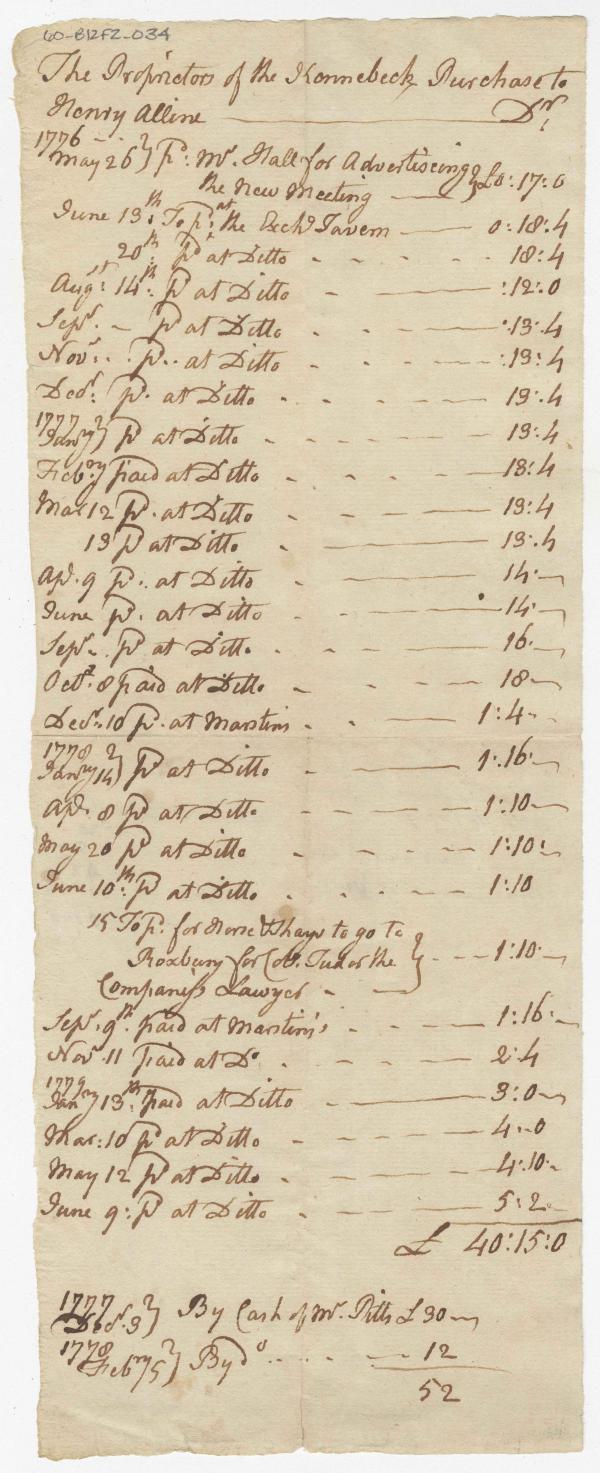 60-B12F2-034
The Proprietors of the Kennebeck Purchase to
Henry Alline —— Dr.
1776
May 26 } pd. Mr. Hall for Advertiseing } £0:17:0
the New Meeting ——
June 13th. To pd. at the Exchd Tavern — 0:18:4
20th pd at Ditto - - - - 18:4
Augst: 14th: pd at Ditto - —— :12:0
Sepr. - pd at Ditto - - - — :13:4
Novr. . pd. at Ditto - - - — :13:4
Decr. pd. at Ditto - - - — 13:4
1777
Janry } pd at Ditto - - - — 13:4
Febry paid at Ditto - - - — 13:4
Mar 12 pd. at Ditto - - - — 13:4
13 pd at Ditto - —— 13:4
Apl. 9 pd. at Ditto - - — 14:—
June pd. at Ditto - - - — 14:—
Sepr. pd at Ditto - - - — 16:—
Octr. 8 paid at Ditto - - - — 18—
Decr. 10 pd. at Marstins - - — 1:4-
1778
Janry 14 } pd at Ditto - —— 1:16:—
Apl. 8 pd at Ditto - - - — 1:10—
May 20 pd at Ditto - - - — 1:10:-
June 10th: pd at Ditto - - - — 1:10
15 To pd. for Horse & Shays to go to
Roxbury for Col. Tudor the } - - — 1:10—
Companys Lawyer - —
Sepr. 9th. paid at Marstins - - — 1:16:—
Novr. 11 paid at Do. - - - — 2:4
1779
Janry 13th: paid at Ditto —— 3:0—
Mar: 10 pd at Ditto - - - — 4:-0
May 12 pd at Ditto - - - — 4:10:-
June 9: pd at Ditto - - - — 5:2.-
£ 40:15:0
1777
Decr. 3 } By Cash of Mr. Pitts £30—
1778
Febry 5 } By do .. - - — 12
52